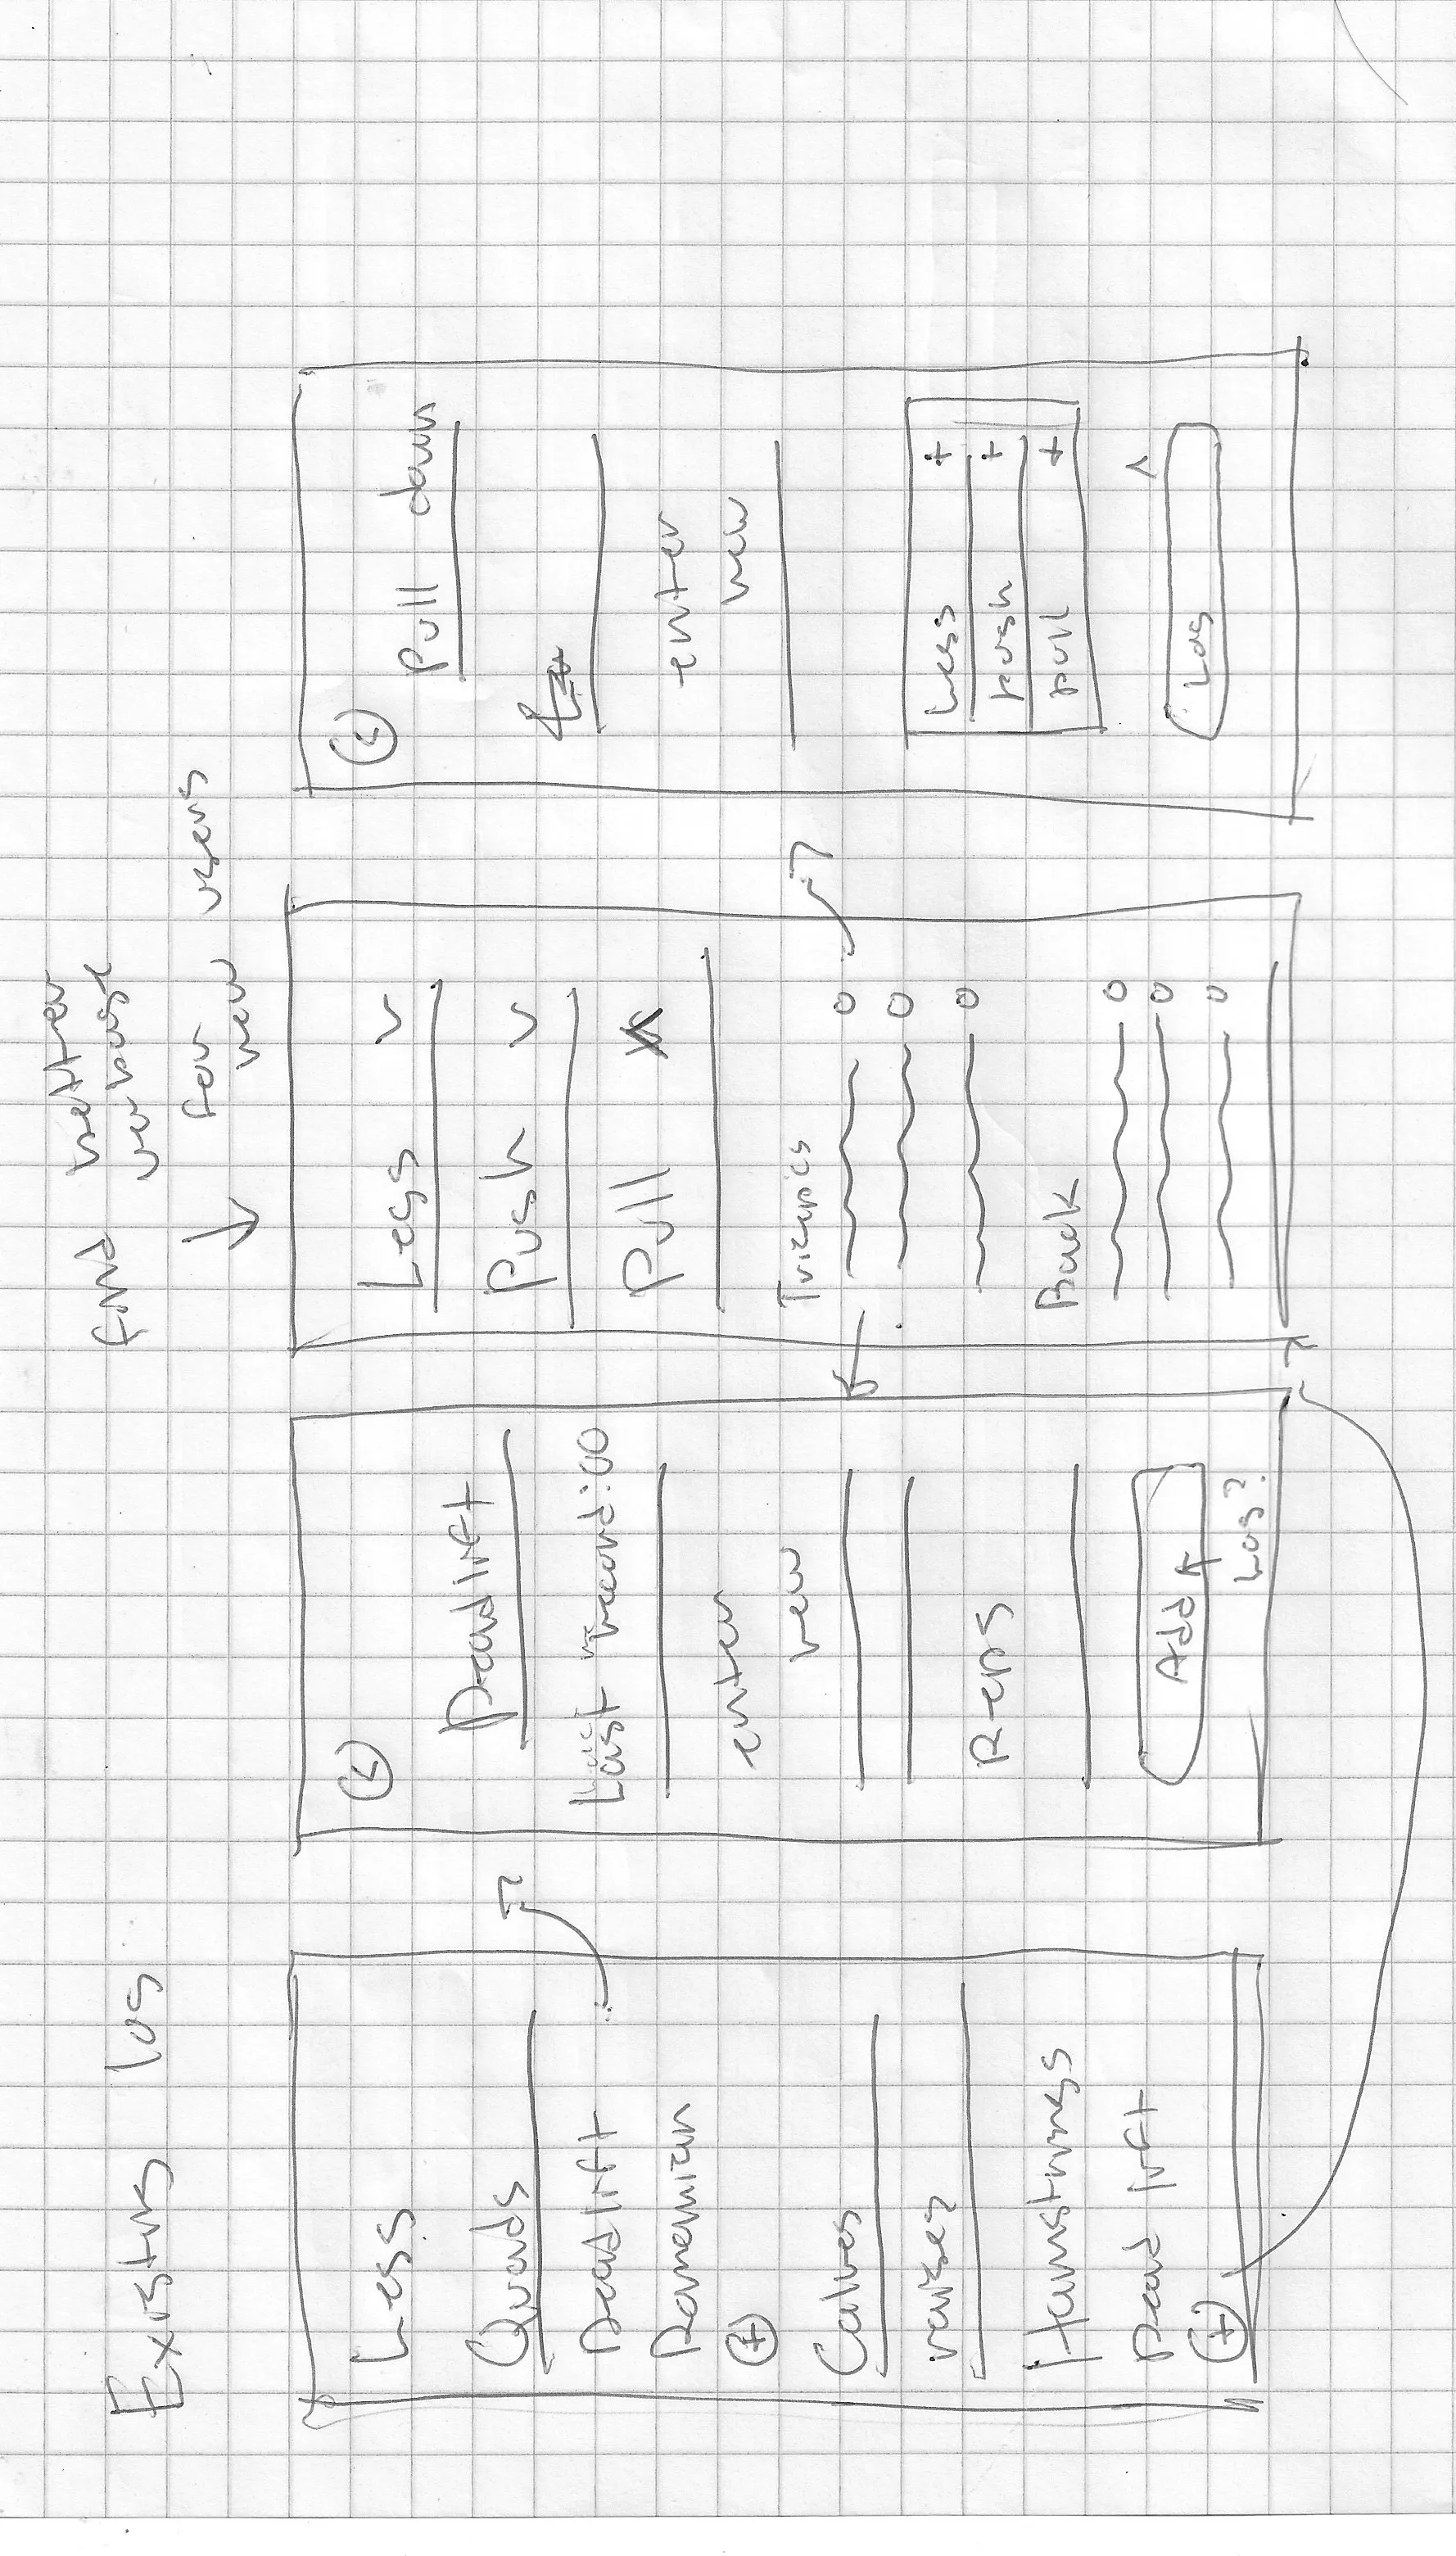 Existing log
Legs
Quads
Deadlift
Romenian
+
Calves
raises
Hamstrings
Dead lift
+
<
Deadlift
Last record:00
enter
new
Reps
Add
Log?
find better
verbage
for
new users
Legs v
Push v
Pull
Tricepics
Back
<
Pull down
enter
new
Legs +
push +
pull +
^
Log